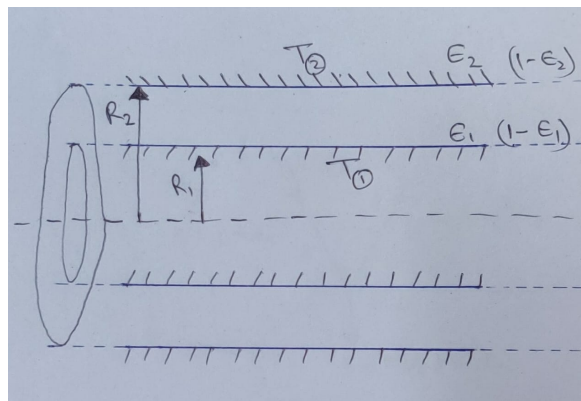 T② ϵ₂ (1-ϵ₂)
R₂
ϵ₁ (1-ϵ₁)
T①
R₁